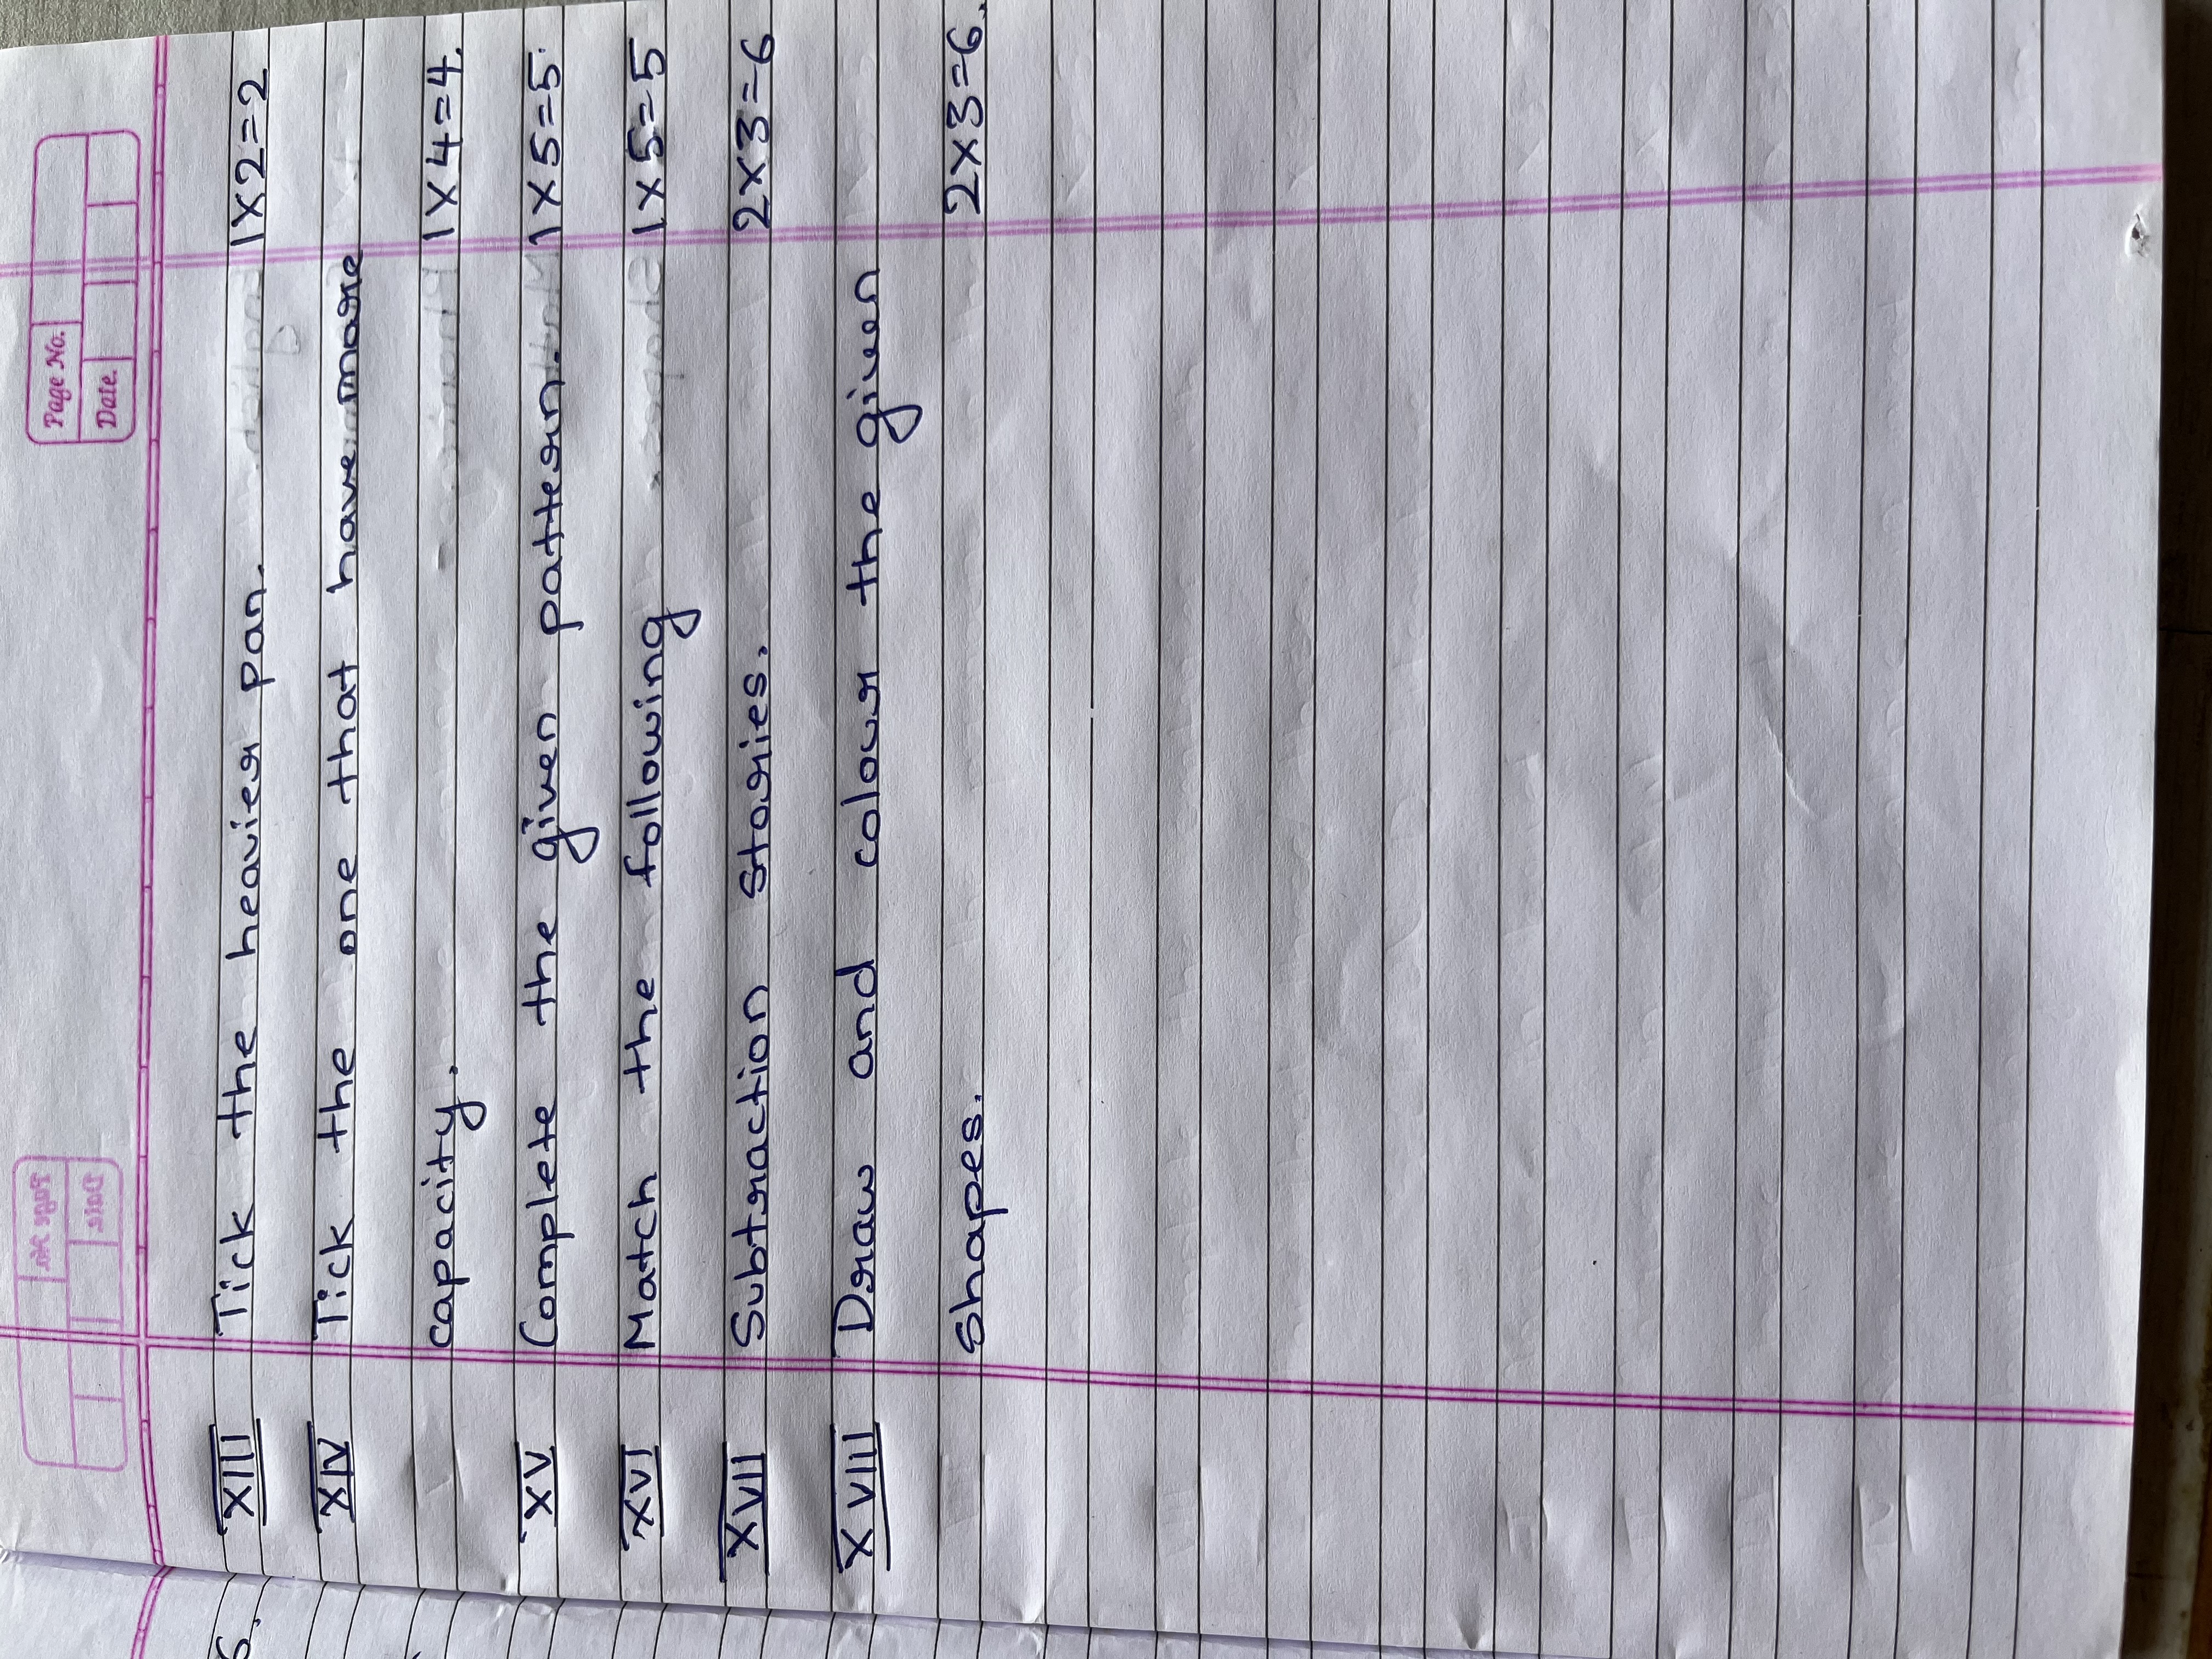 Page No.
Date.
XIII Tick the heavier pan. 1x2=2
XIV Tick the one that have more
capacity. 1x4=4.
XV Complete the given pattern. 1x5=5.
XVI Match the following 1x5=5
XVII Subtraction stories. 2x3=6
XVIII Draw and colour the given
shapes. 2x3=6.